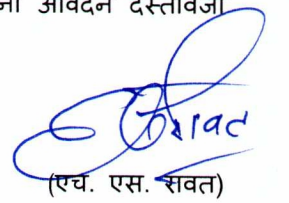 ना आवेदन दस्तावेजों
रावत
(एच. एस. रावत)